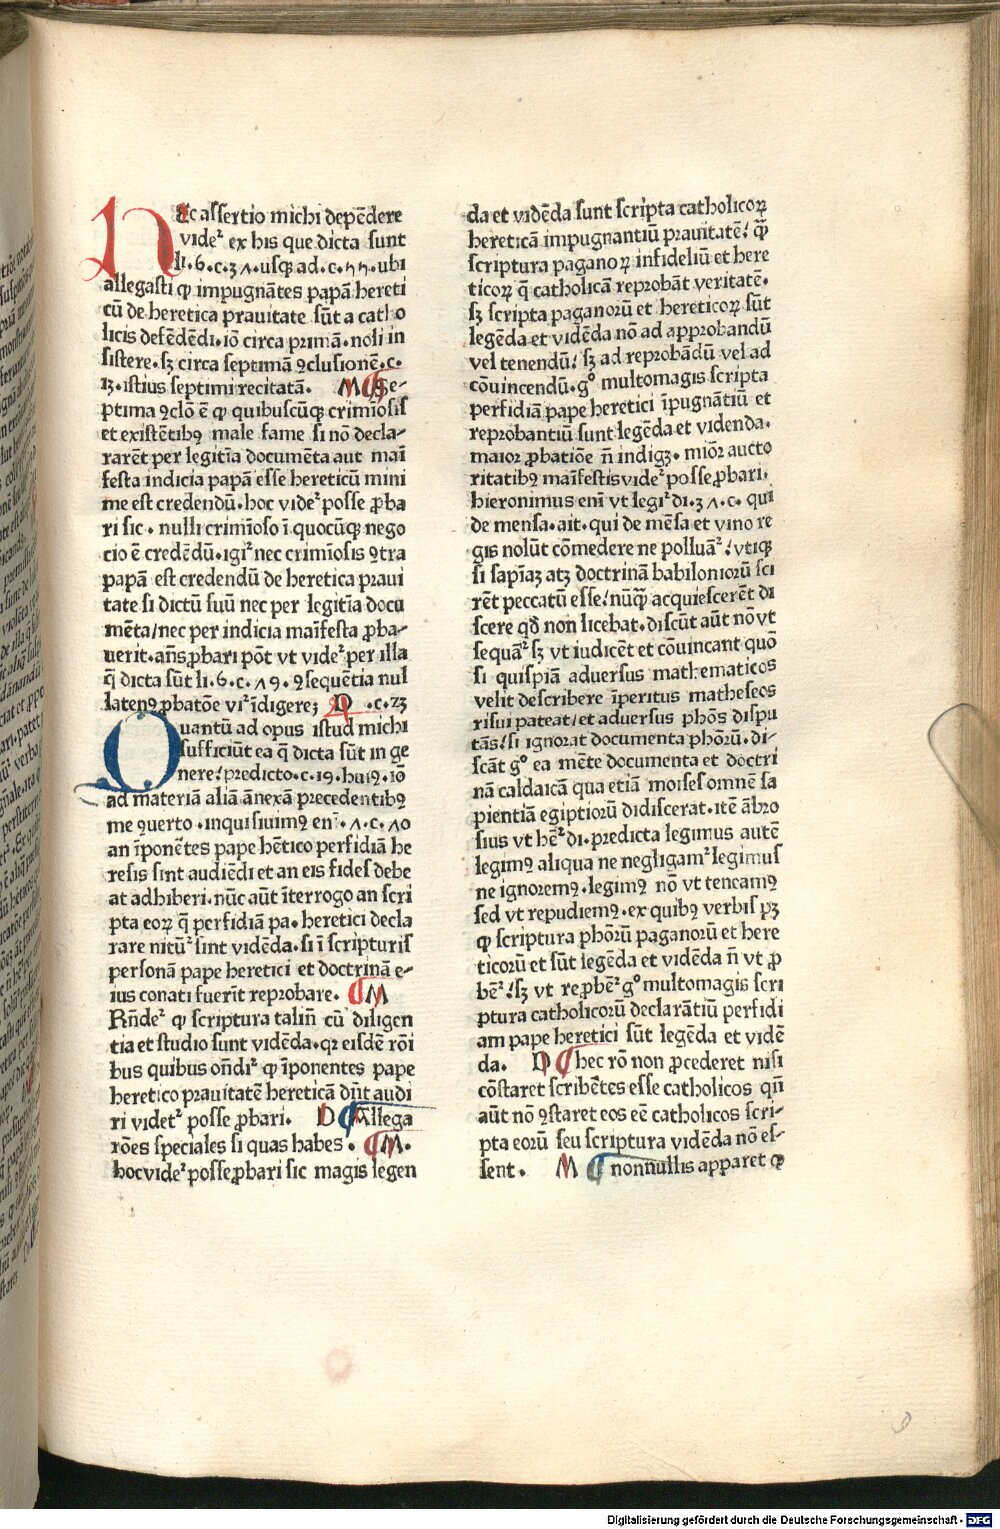 Nec assertio michi depēdere
videꝰ ex his que dicta sunt
li.6.c.31.usqꝫ ad.c.55.ubi
allegasti ꝙ impugnātes papā hereti
cū de heretica prauitate sūt a catho
licis defēdēdi.iō circa primā.noli in
sistere.sꝫ circa septimā ꝯclusionē.c.
13.istius septimi recitatā. M Se-
ptima ꝯclō ē ꝙ quibuscūqꝫ crimīosis
et existētibꝰ male fame si nō decla-
rarēt per legitīa documēta aut maī
festa indicia papā esse hereticū mini
me est credendū.hoc videꝰ posse ꝓba
ri sic. nulli crimīoso ī quocūqꝫ nego
cio ē credēdū.igiꝰ nec crimīosis ꝯtra
papā est credendū de heretica praui
tate si dictū suū nec per legitīa docu
mēta/nec per indicia maīfesta ꝓba-
uerit.añs ꝓbari pōt vt videꝰ per illa
q̄ dicta sūt li.6.c.19.ꝯsequētia nul
latenꝰ ꝓbatōe viꝰ īdigere; D .c.23
Quantū ad opus istud michi
sufficiūt ea q̄ dicta sūt in ge
nere/predicto.c.19.huiꝰ.iō
ad materiā aliā ānexā precedentibꝰ
me ꝯuerto.inquisiuimꝰ enī.1.c.10
an īponētes pape hētico perfidiā he
resis sint audiēdi et an eis fides debe
at adhiberi.nūc aūt īterrogo an scri
pta eoꝝ q̄ perfidiā pa.heretici decla
rare nitūꝰ sint vidēda.si ī scripturis
personā pape heretici et doctrinā e-
ius conati fuerīt reprobare. M
Rñdeꝰ ꝙ scriptura taliū cū diligen
tia et studio sunt vidēda.qꝛ eisdē rōi
bus quibus oñdiꝰ ꝙ īponentes pape
heretico prauitatē hereticā dñt audi
ri videtꝰ posse ꝓbari. D Allega
rōes speciales si quas habes. M.
hoc videꝰ posse ꝓbari sic magis legen
da et vidēda sunt scripta catholicoꝝ
hereticā impugnantiū prauitatē/ ꝙ̄
scriptura paganoꝝ infideliū et here
ticoꝝ q̄ catholicā reprobāt veritatē.
sꝫ scripta paganorū et hereticoꝝ sūt
legēda et vidēda nō ad approbandū
vel tenendū/ sꝫ ad reprobādū vel ad
cōuincendū.gº multomagis scripta
perfidiā pape heretici īpugnātiū et
reprobantiū sunt legēda et videnda.
maior ꝓbatiōe ñ indigꝫ.miōr aucto
ritatibꝰ maīfestis videꝰ posse ꝓbari.
hieronimus enī vt legiꝰ di.31.c.qui
de mensa.ait.qui de mēsa et vino re
gis nolūt cōmedere ne polluāꝰ/vtiqꝫ
si sapīaꝫ atꝫ doctrinā babiloniorū sci
rēt peccatū esse/nūqꝫ̄ acquiescerēt di
scere qđ non licebat.discūt aūt nō vt
sequāꝰ sꝫ vt iudicēt et cōuincant quō
si quispiā aduersus mathematicos
velit describere īperitus matheseos
risui pateat/et aduersus phōs dispu
tās/si ignorat documenta phōrū.di-
scāt gº ea mēte documenta et doctri
nā caldaicā qua etiā moises omnē sa
pientiā egiptiorū didiscerat.itē ābro
sius vt hēꝰ di.predicta legimus autē
legimꝰ aliqua ne negligamꝰ legimus
ne ignoremꝰ.legimꝰ nō vt teneamꝰ
sed vt repudiemꝰ.ex quibꝰ verbis pꝫ
ꝙ scriptura phōrū paganorū et here
ticorū et sūt legēda et vidēda ñ vt ꝓ
bēꝰ/sꝫ vt reꝓbēꝰ gº multomagis scri
ptura catholicorū declarātiū perfidi
am pape heretici sūt legēda et vidē
da. D hec rō non ꝓcederet nisi
cōstaret scribētes esse catholicos qñ
aūt nō ꝯstaret eos eē catholicos scri-
pta eorū seu scriptura vidēda nō es-
sent. M nonnullis apparet ꝙ
Digitalisierung gefördert durch die Deutsche Forschungsgemeinschaft - DFG